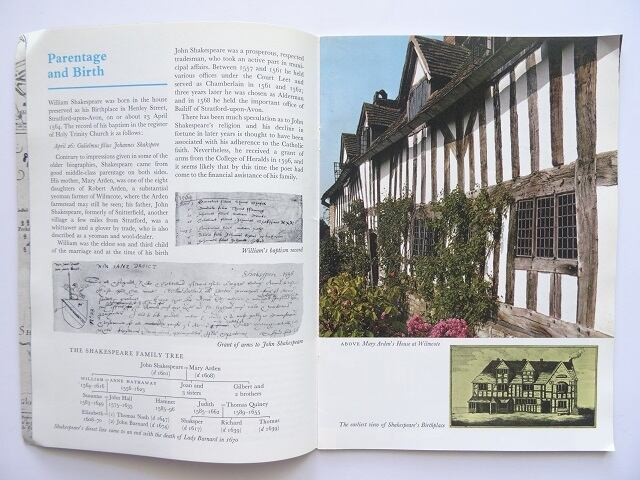 Parentage
and Birth
William Shakespeare was born in the house
preserved as his Birthplace in Henley Street,
Stratford-upon-Avon, on or about 23 April
1564. The record of his baptism in the register
of Holy Trinity Church is as follows:
April 26: Gulielmus filius Johannes Shakspere
Contrary to impressions given in some of the
older biographies, Shakespeare came from
good middle-class parentage on both sides.
His mother, Mary Arden, was one of the eight
daughters of Robert Arden, a substantial
yeoman farmer of Wilmcote, where the Arden
farmstead may still be seen; his father, John
Shakespeare, formerly of Snitterfield, another
village a few miles from Stratford, was a
whittawer and a glover by trade, who is also
described as a yeoman and wool-dealer.
William was the eldest son and third child
of the marriage and at the time of his birth
John Shakespeare was a prosperous, respected
tradesman, who took an active part in muni-
cipal affairs. Between 1557 and 1561 he held
various offices under the Court Leet and
served as Chamberlain in 1561 and 1562;
three years later he was chosen as Alderman
and in 1568 he held the important office of
Bailiff of Stratford-upon-Avon.
There has been much speculation as to John
Shakespeare's religion and his decline in
fortune in later years is thought to have been
associated with his adherence to the Catholic
faith. Nevertheless, he received a grant of
arms from the College of Heralds in 1596, and
it seems likely that by this time the poet had
come to the financial assistance of his family.
William's baptism record
NON SANZ DROICT
Shakespeare 1596
Grant of arms to John Shakespeare
THE SHAKESPEARE FAMILY TREE
John Shakespeare—Mary Arden
(d 1601) (d 1608)
WILLIAM—ANNE HATHAWAY Joan and Gilbert and
1564-1616 1556-1623 2 sisters 2 brothers
Susanna—John Hall Hamnet Judith—Thomas Quiney
1583-1649 1575-1635 1585-96 1585-1662 1589-1655
Elizabeth—(1) Thomas Nash (d 1647) Shaksper Richard Thomas
1608-70 (2) John Barnard (d 1674) (d 1617) (d 1639) (d 1639)
Shakespeare's direct line came to an end with the death of Lady Barnard in 1670
ABOVE Mary Arden's House at Wilmcote
The earliest view of Shakespeare's Birthplace